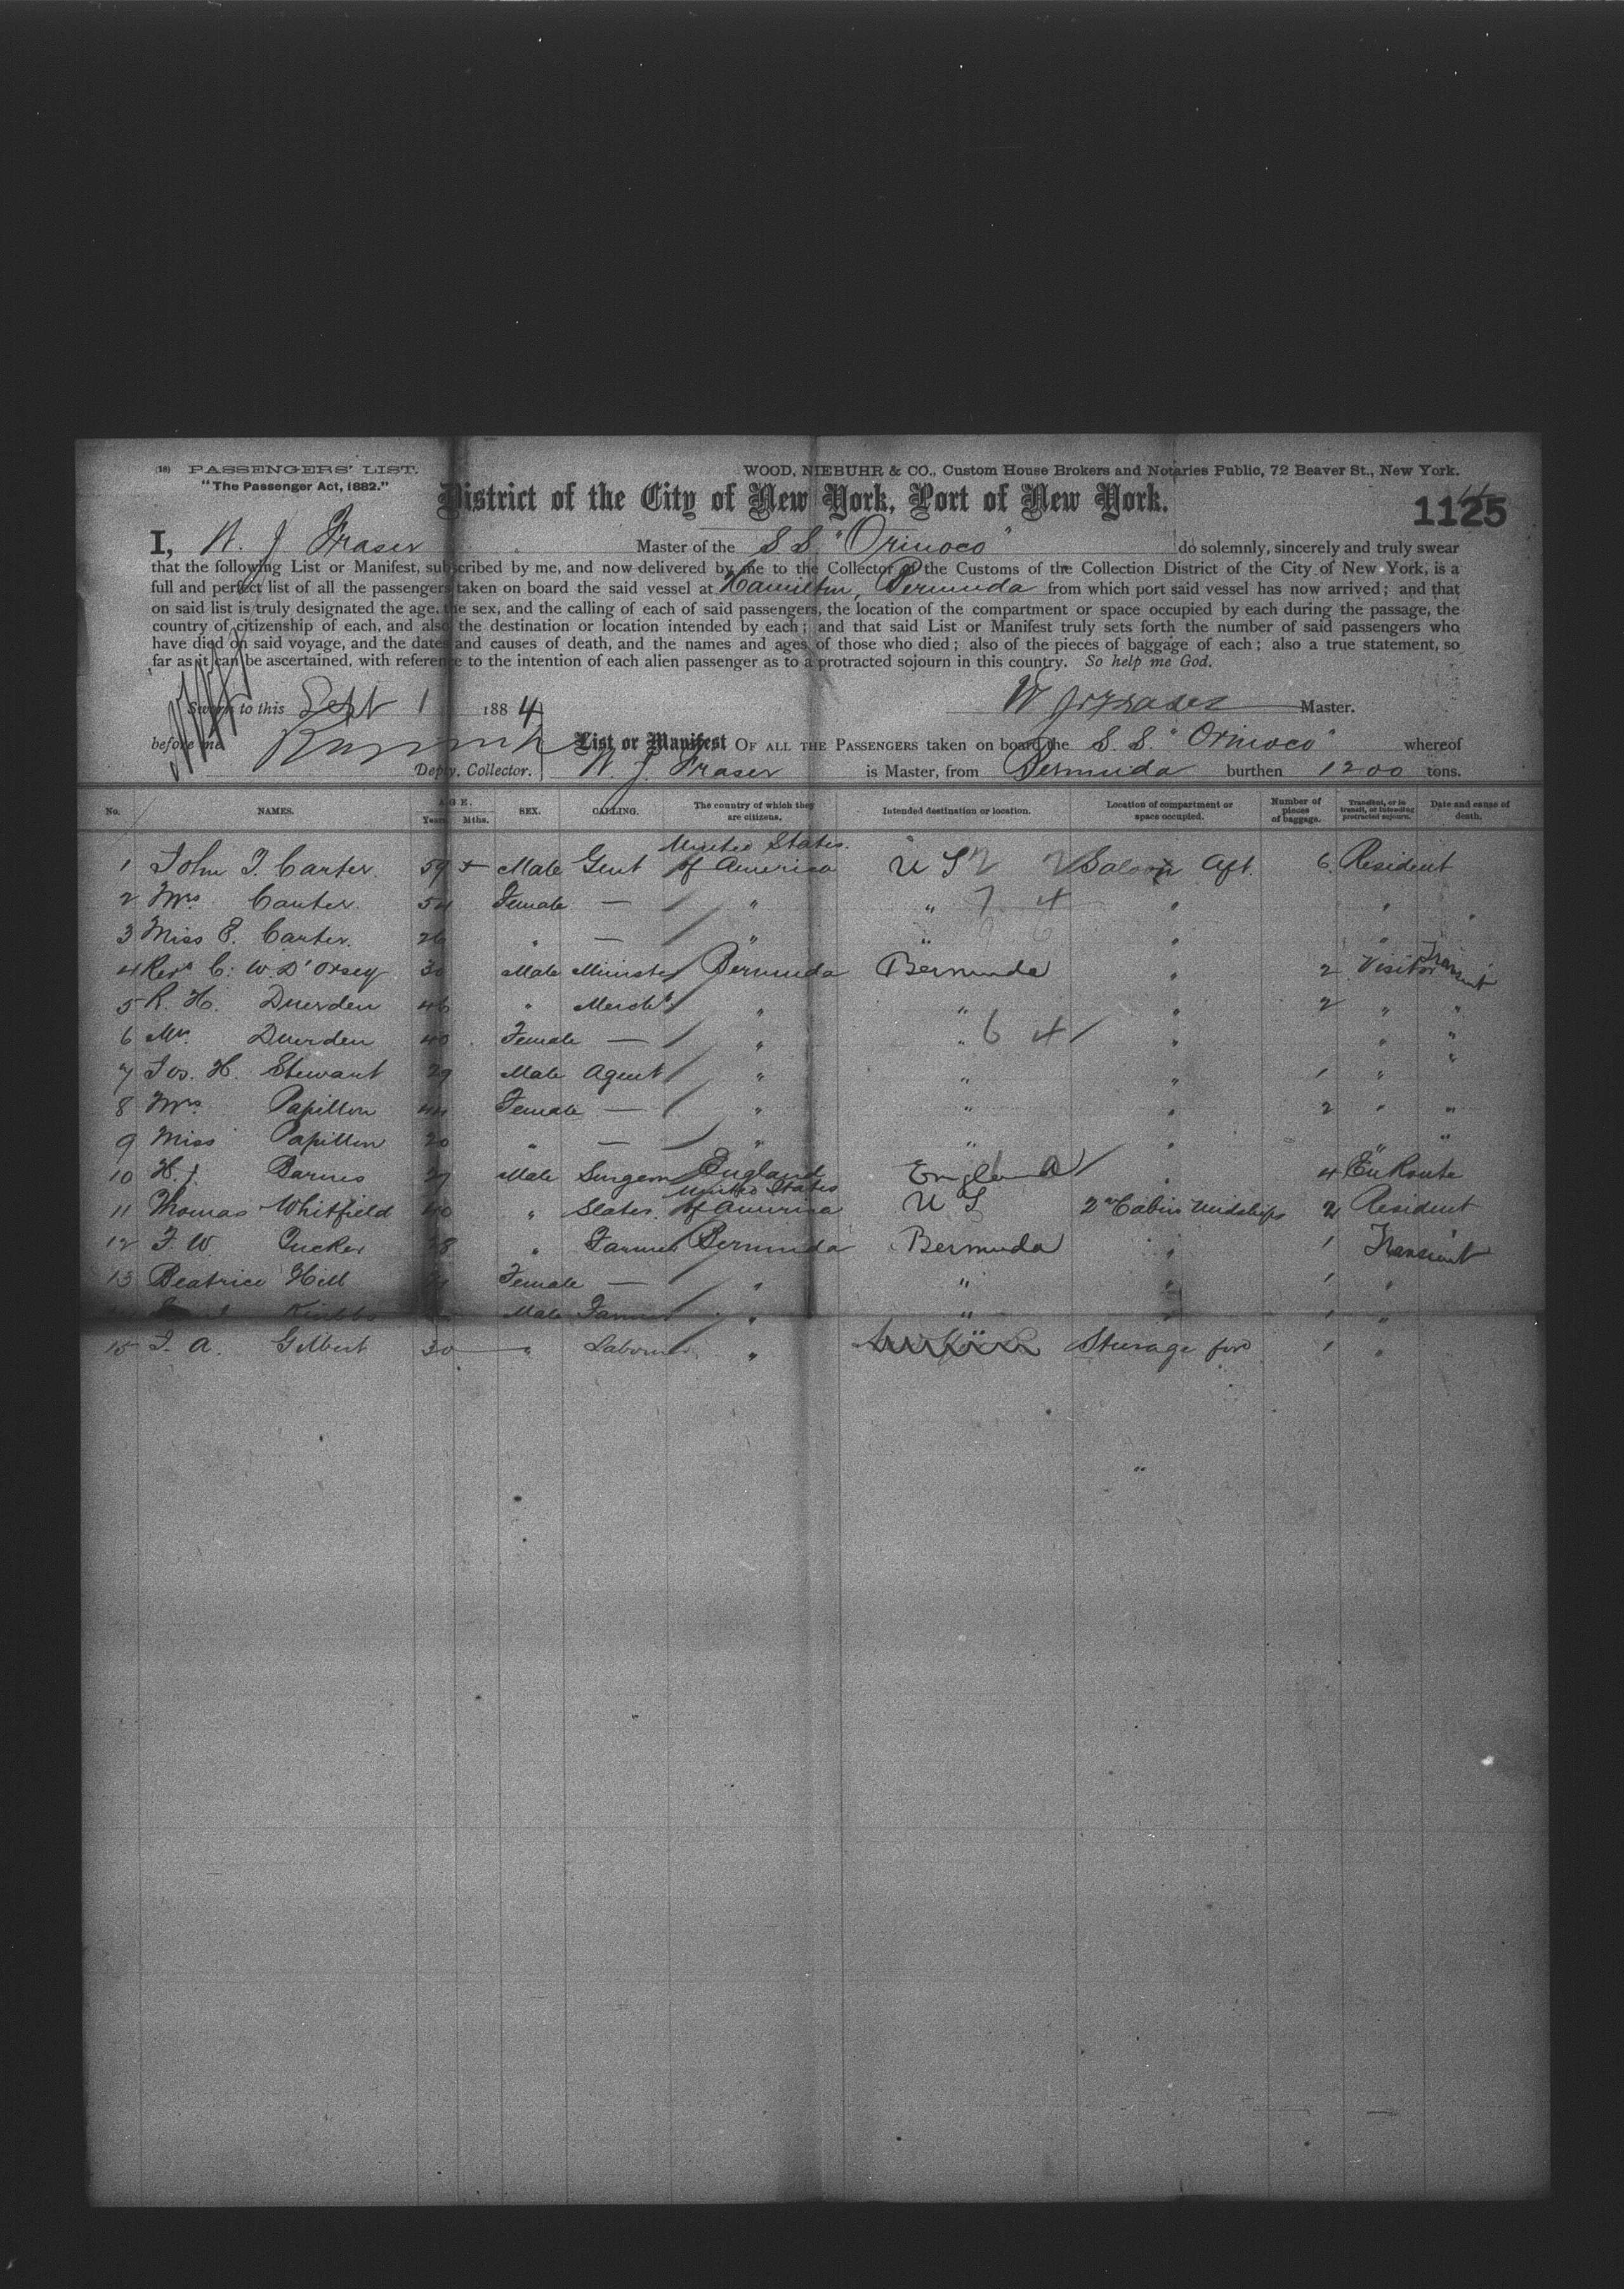 (18) PASSENGERS' LIST.
"The Passenger Act, 1882."
WOOD, NIEBUHR & CO., Custom House Brokers and Notaries Public, 72 Beaver St., New York.
District of the City of New York, Port of New York.
1125
I, W. J. Fraser Master of the S S. "Orinoco" do solemnly, sincerely and truly swear
that the following List or Manifest, subscribed by me, and now delivered by me to the Collector of the Customs of the Collection District of the City of New York, is a
full and perfect list of all the passengers taken on board the said vessel at Hamilton, Bermuda from which port said vessel has now arrived; and that
on said list is truly designated the age, the sex, and the calling of each of said passengers, the location of the compartment or space occupied by each during the passage, the
country of citizenship of each, and also the destination or location intended by each; and that said List or Manifest truly sets forth the number of said passengers who
have died on said voyage, and the dates and causes of death, and the names and ages of those who died; also of the pieces of baggage of each; also a true statement, so
far as it can be ascertained, with reference to the intention of each alien passenger as to a protracted sojourn in this country. So help me God.
Sworn to this Sept 1 1884
W J Fraser Master.
before me
Depty. Collector.
List or Manifest OF ALL THE PASSENGERS taken on board the S. S. "Orinoco" whereof
W. J. Fraser is Master, from Bermuda burthen 1200 tons.
No. NAMES. AGE. Years Mths. SEX. CALLING. The country of which they are citizens. Intended destination or location. Location of compartment or space occupied. Number of pieces of baggage. Transient, or in transit, or intending protracted sojourn. Date and cause of death.
1 John T. Carter. 59 Male Gent United States of America U S Saloon Aft. 6 Resident
2 Mrs Carter. 54 Female — " " " "
3 Miss E. Carter. 26 " — " " " "
4 Revd C. W. D'Orsey 30 Male Minister Bermuda Bermuda " 2 Visitor Transient
5 R. H. Duerden 46 " Mercht " " " 2 " "
6 Mr. Duerden 40 Female — " " 6 4 " " "
7 Jos. H. Stewart 29 Male Agent " " " 1 " "
8 Mrs Papillon 44 Female — " " " 2 " "
9 Miss Papillon 20 " — " " " "
10 H. J. Barnes 27 Male Surgeon England England " 4 En Route
11 Thomas Whitfield 40 " Slater. United States of America U S 2nd Cabin Midships 2 Resident
12 F. W. Tucker 28 " Farmer Bermuda Bermuda " 1 Transient
13 Beatrice Hill Female — " " " 1 "
Male Farmer " " " 1 "
15 J. A. Gilbert 30 " Laborer " Steerage for'd 1 "